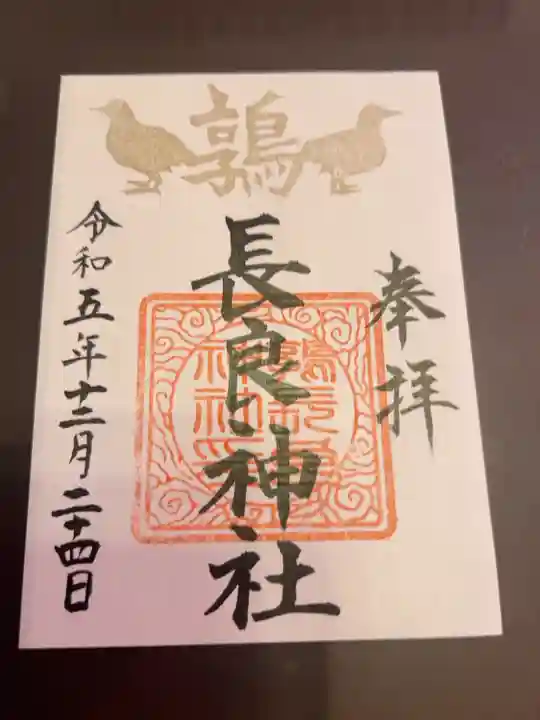 鶉
奉拝
長良神社
令和五年十二月二十四日